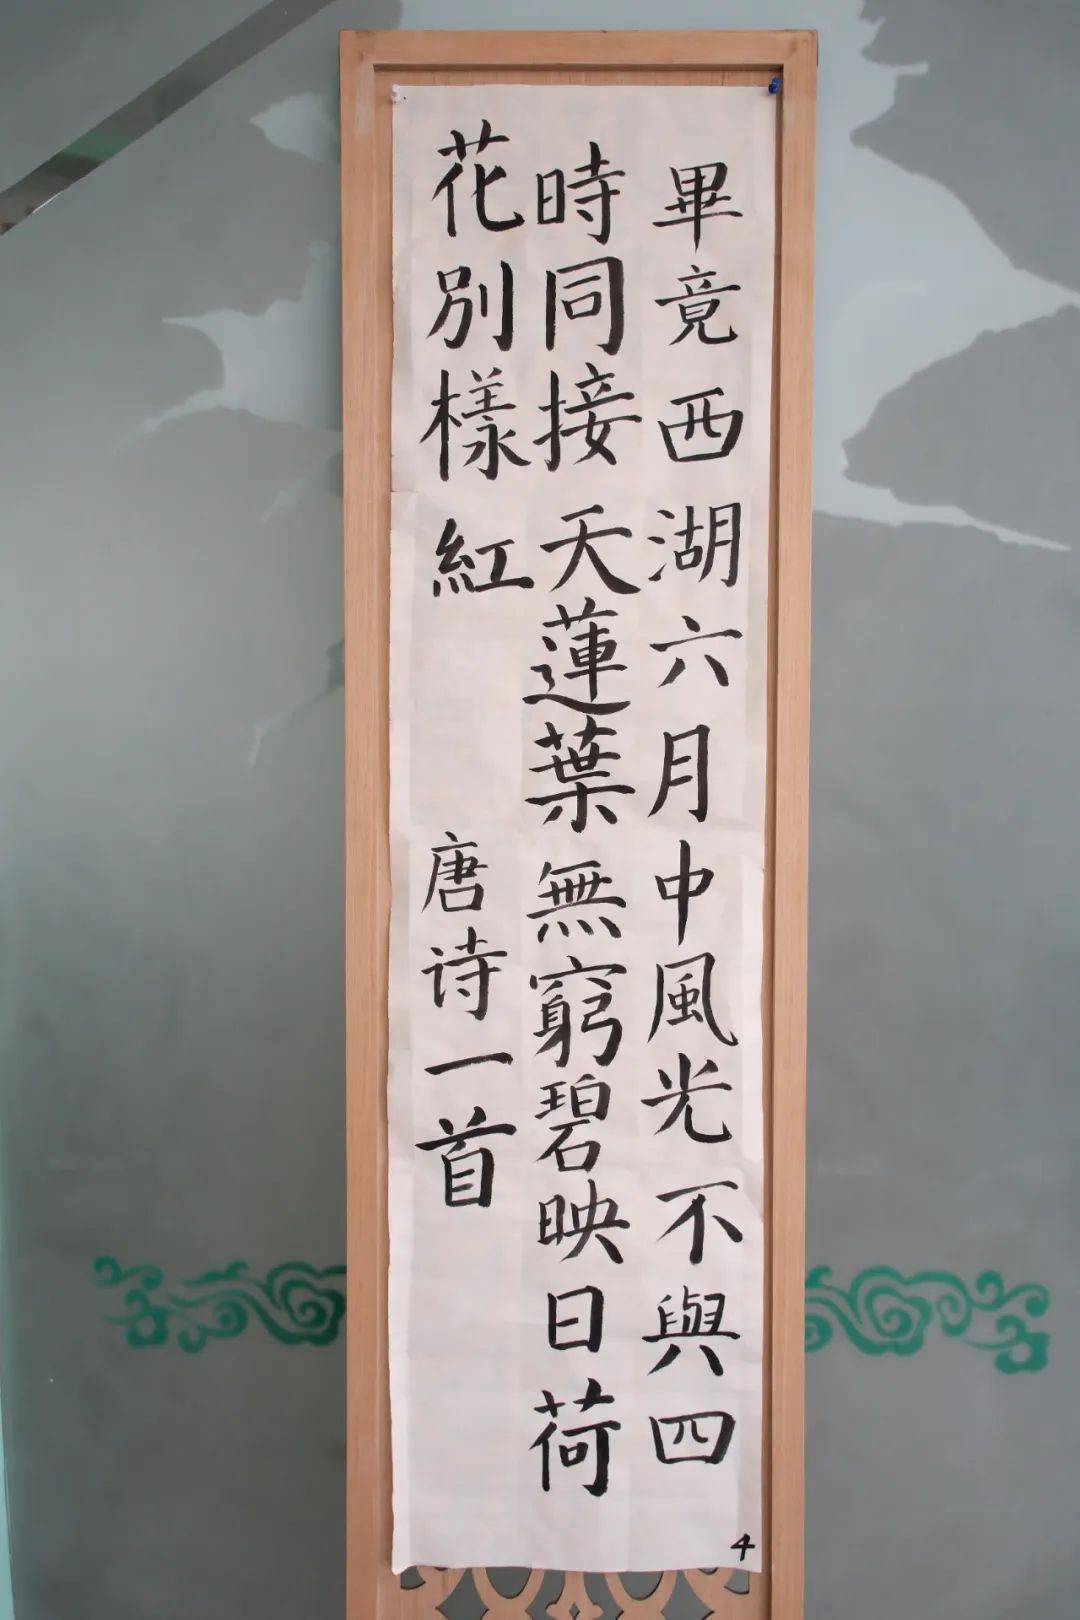 畢竟西湖六月中風光不與四
時同接天蓮葉無窮碧映日荷
花別樣紅
唐诗一首
4